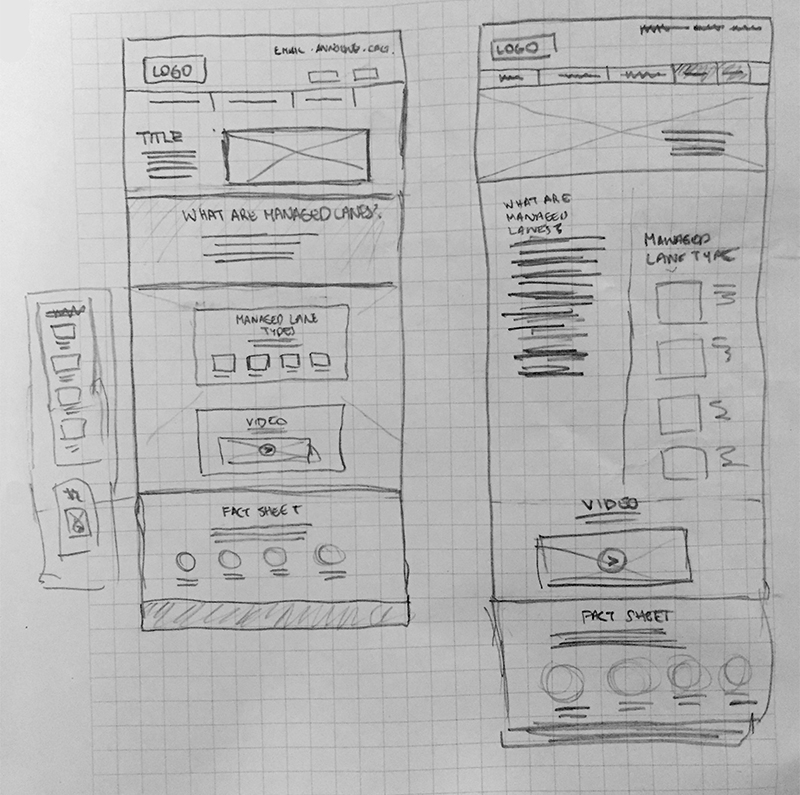 LOGO
TITLE
WHAT ARE MANAGED LANES?
MANAGED LANE
TYPES
VIDEO
FACT SHEET
LOGO
WHAT ARE
MANAGED
LANES?
MANAGED
LANE TYPE
VIDEO
FACT SHEET